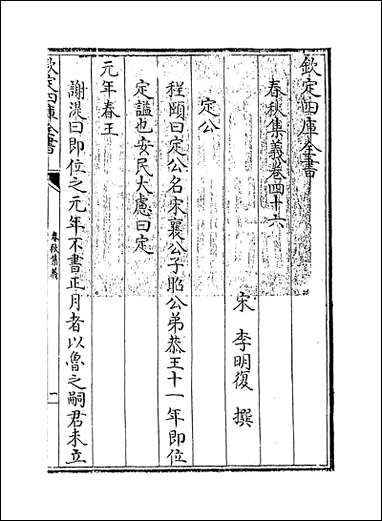 欽定四庫全書
春秋集義卷四十六
宋 李明復 撰
定公
程頤曰定公名宋襄公子昭公弟恭王十一年即位
定謚也安民大慮曰定
元年春王
謝湜曰即位之元年不書正月者以魯之嗣君未立
欽定四庫全書
春秋集義
一